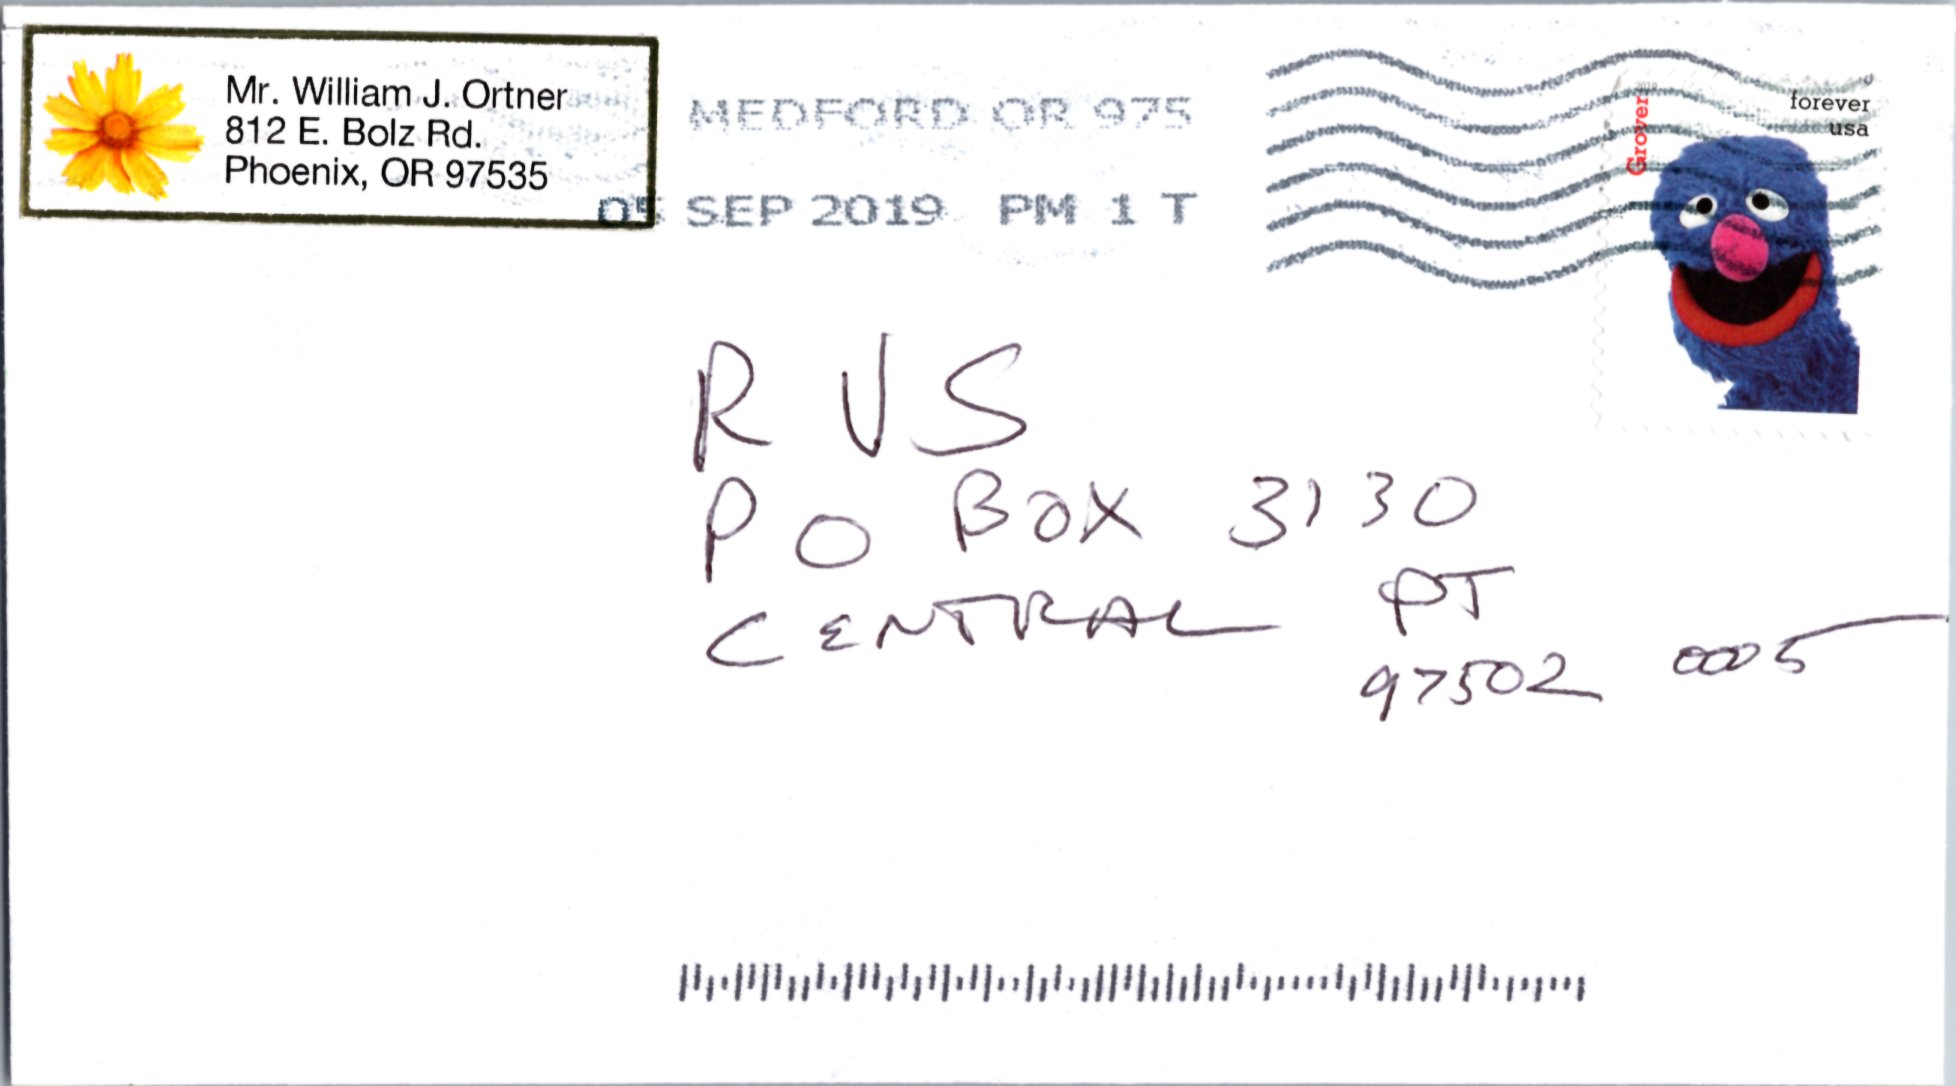 Mr. William J. Ortner
812 E. Bolz Rd.
Phoenix, OR 97535
MEDFORD OR 975
05 SEP 2019 PM 1 T
Grover
forever
usa
RVS
PO BOX 3130
CENTRAL PT
97502 0005